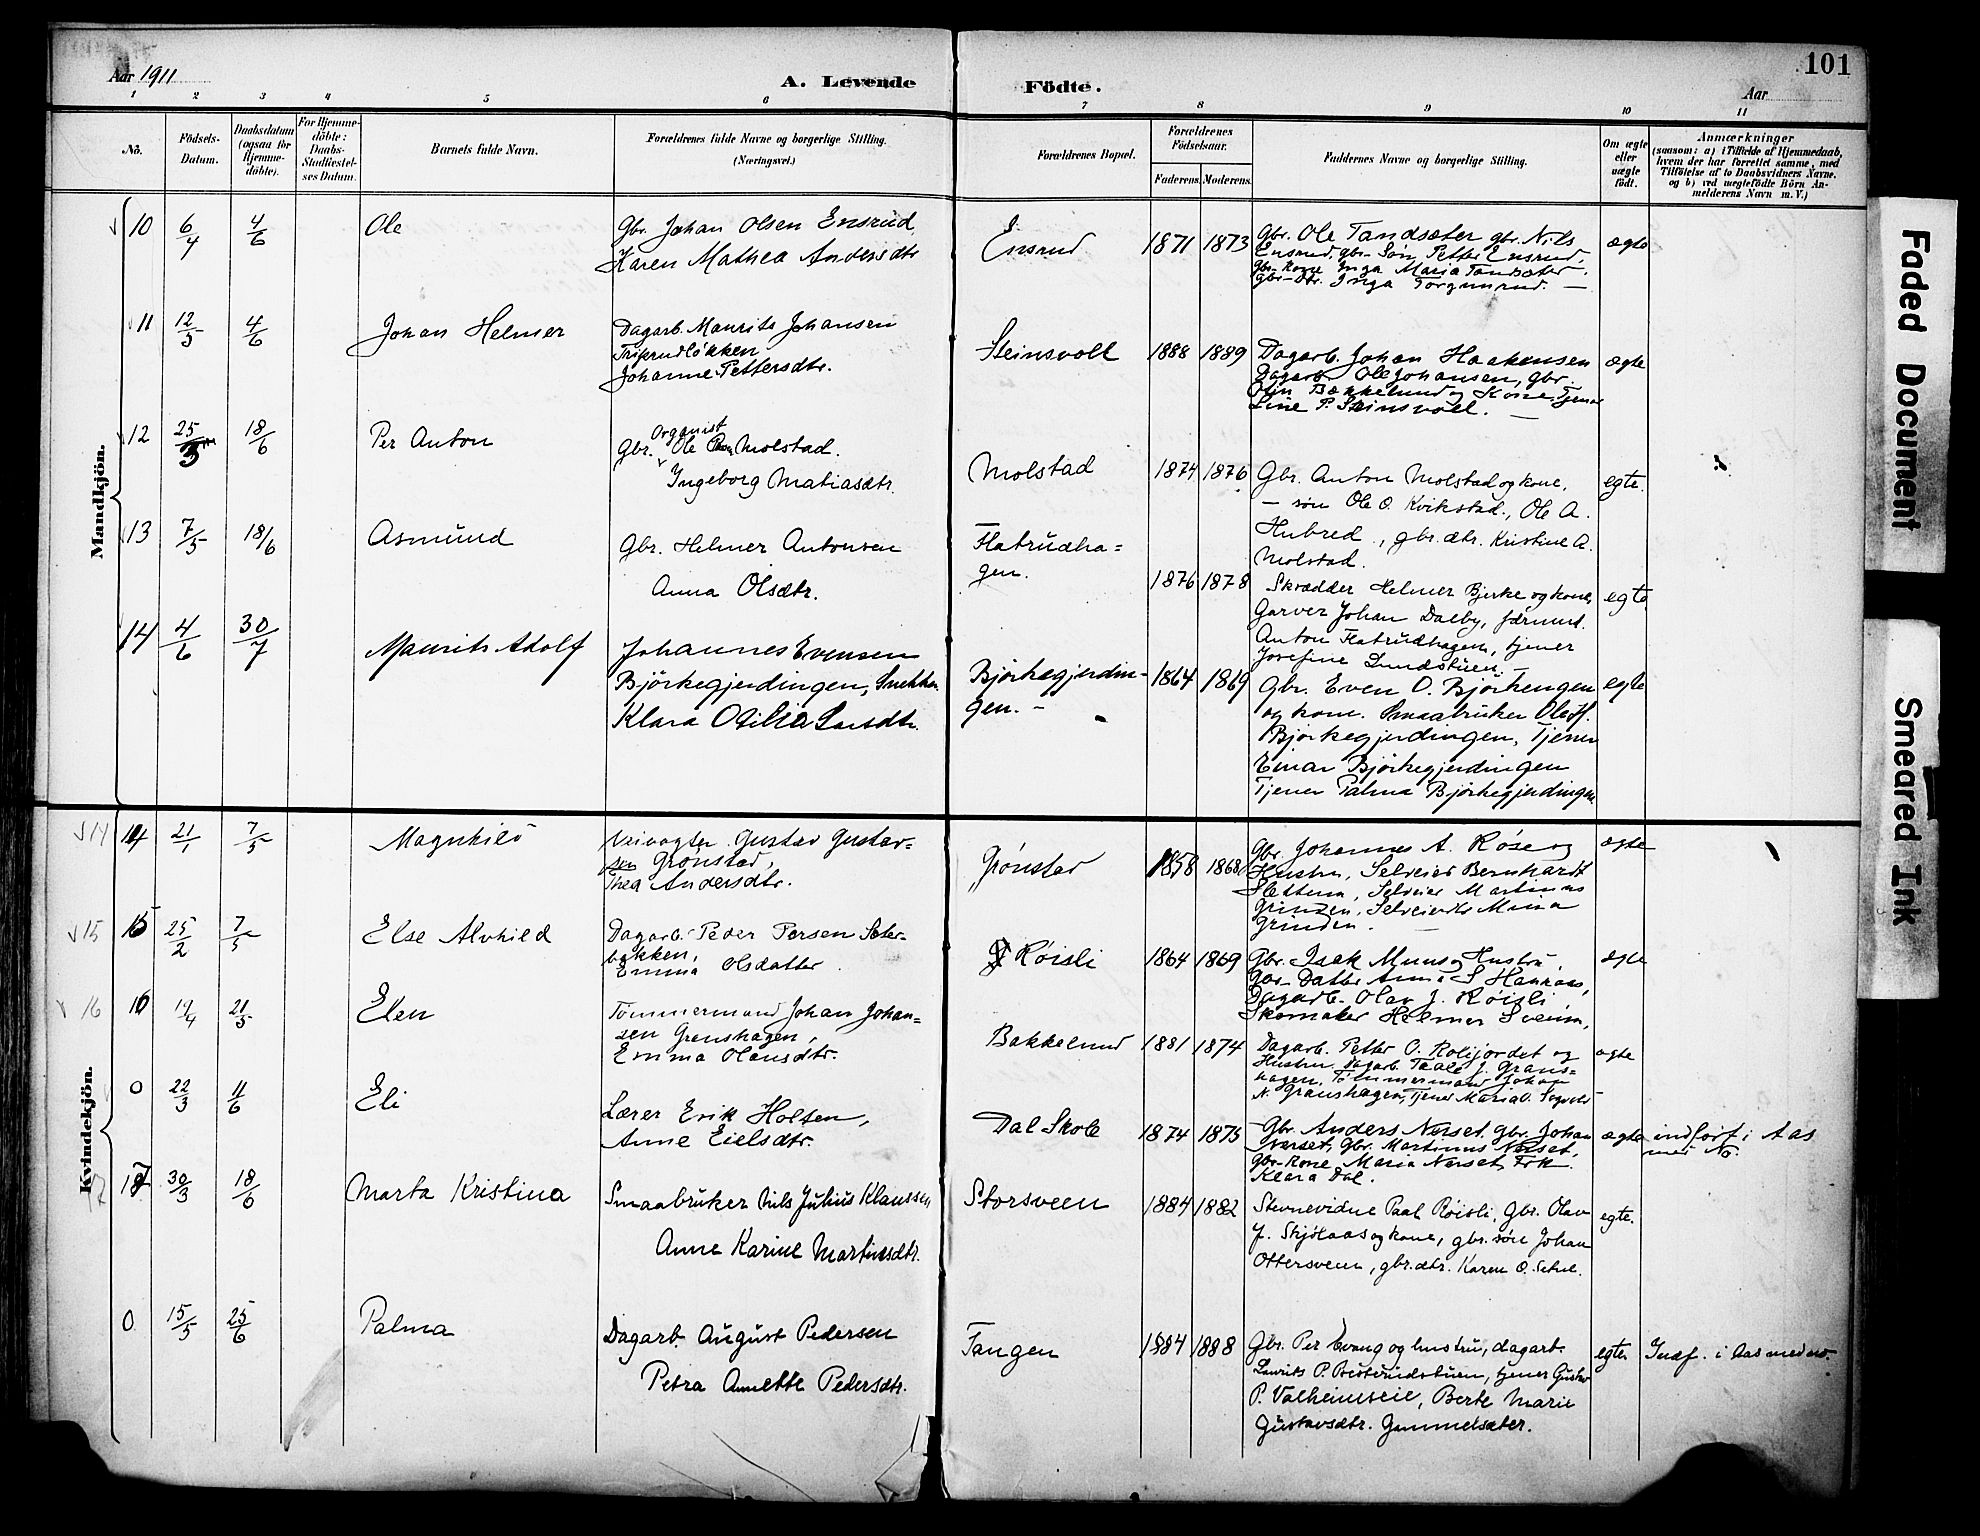 101
Aar 1911
A. Levende Födte.
Aar
1 2 3 4 5 6 7 8 9 10 11
No.
Födsels-
Datum.
Daabsdatum
(ogsaa for
Hjemme-
döbte).
For Hjemme-
döbte:
Daabs-
Stadfæstel-
ses Datum.
Barnets fulde Navn.
Forældrenes fulde Navne og borgerlige Stilling.
(Næringsvei.)
Forældrenes Bopæl.
Forældrenes
Födselsaar.
Faderens. Moderens.
Faddernes Navne og borgerlige Stilling.
Om ægte
eller
uægte
født.
Anmærkninger
(saasom: a) i Tilfælde af Hjemmedaab,
hvem der har forrettet samme, med
Tilföielse af to Daabsvidners Navne.
og b) ved uægtefödte Börn An-
melderens Navn m. V.)
Mandkjön.
10 6/4 4/6 Ole
Gbr. Johan Olsen Ensrud,
Karen Mathea Andersdtr
Ensrud 1871 1873
Gbr. Ole Tandsæter gbr. Nils
Ensrud, gbr- Søn Petter Ensrud,
Gbr- Kone Inga Maria Tandsæter.
gbr-dtr. Inga Torgunrud. —
ægte
11 12/5 4/6 Johan Helmer
Dagarb. Maurits Johansen
Johanne Pettersdtr.
Steinsvoll 1888 1889
Dagarb. Johan Haakensen
Dagarb Ole Johansen, gbr.
Bækkelund og Kone, Tjener
Line P. Steinsvoll. —
ægte
12 25/3 18/6 Per Anton
Organist
Gbr. Ole Molstad.
Ingeborg Matiasdtr.
Molstad 1874 1876
Gbr. Anton Molstad og kone,
— søn Ole O. Kvikstad., Ole A.
Hubred, gbr.dtr. Kristine A.
Molstad.
egte.
13 7/5 18/6 Asmund
Gbr. Helmer Antonsen
Anna Olsdtr.
Flatrudha=
gen.
1876 1878
Skrædder Helmer Bjerke og kone,
Garver Johan Dalby, førmd.
Anton Flatrudhagen, tjener
Josefine Lundstuen —
egte
14 4/6 30/7 Maurits Adolf
Johannes Evensen
Björkegjerdingen, Snekker
Klara Otilia Larsdtr.
Björkegjerdin-
gen. -
1864 1869
Gbr. Even O. Björkengen
og kone. Smaabruker Ole H.
Björkegjerdingen, Tjener
Einar Björkegjerdingen
Tjener Palma Björkegjerdingen
egte
Kvindekjön.
14 14 21/1 7/5 Magnhild
Veivogter Gustav Gustav=
sen Grønstad,
Thea Andersdtr.
Grønstad 1858 1868
Gbr. Johannes A. Røise og
Hustru, Selveier Bernhardt
Slettum, Selveier Martinus
Grinden, Selveierdtr Mina
Grinden. —
ægte
15 15 25/2 7/5 Else Alvhild
Dagarb. Peder Persen Sæter-
bakken,
Emma Olsdatter.
Røisli 1864 1869
Gbr. Isak Muus og Hustru,
Gbr- Datter Anna S Hannaas,
Dagarb- Olav J. Røisli,
Skomaker Helmer Sveum,
ægte
16 16 19/4 21/5 Elen
Tømmermand Johan Johan=
sen Grenshagen,
Emma Olausdtr.
Bakkelund 1881 1874
Dagarb. Petter O. Rolijordet og
Hustru, Dagarb Taale J. Grans=
hagen, Tömmermand Johan
N. Granshagen, Tjener Maria O.
ægte
0 22/3 11/6 Eli
Lærer Erik Holten,
Anne Eielsdtr.
Dal Skole 1874 1875
Gbr. Anders Nerset, gbr. Johan
Nerset, Gbr. Martinus Nerset,
Gbr- Kone Maria Nerset, Frk
Klara Dal.
ægte indført i Aas
med No.
17 17 30/3 18/6 Marta Kristina
Smaabruker Nils Julius Klaussen
Anne Karine Martinsdtr.
Storsveen 1884 1882
Stevnevidne Paal Røisli, Gbr. Olav
J. Skjölaas og kone, gbr. søn Johan
Ottersveen, gbr.dtr. Karen O. Setne.
egte.
0 15/5 25/6 Palma
Dagarb. August Pedersen
Petra Annette Pedersdtr.
Tangen 1884 1888
Gbr. Per Evang og hustru, dagarb.
Laurits P. tjener Gustav
P. Valheimseie, Berte Marie
Gustavsdtr. Gammelsæter.
egte. Indf. i Aas med no.
Faded Document
Smeared Ink